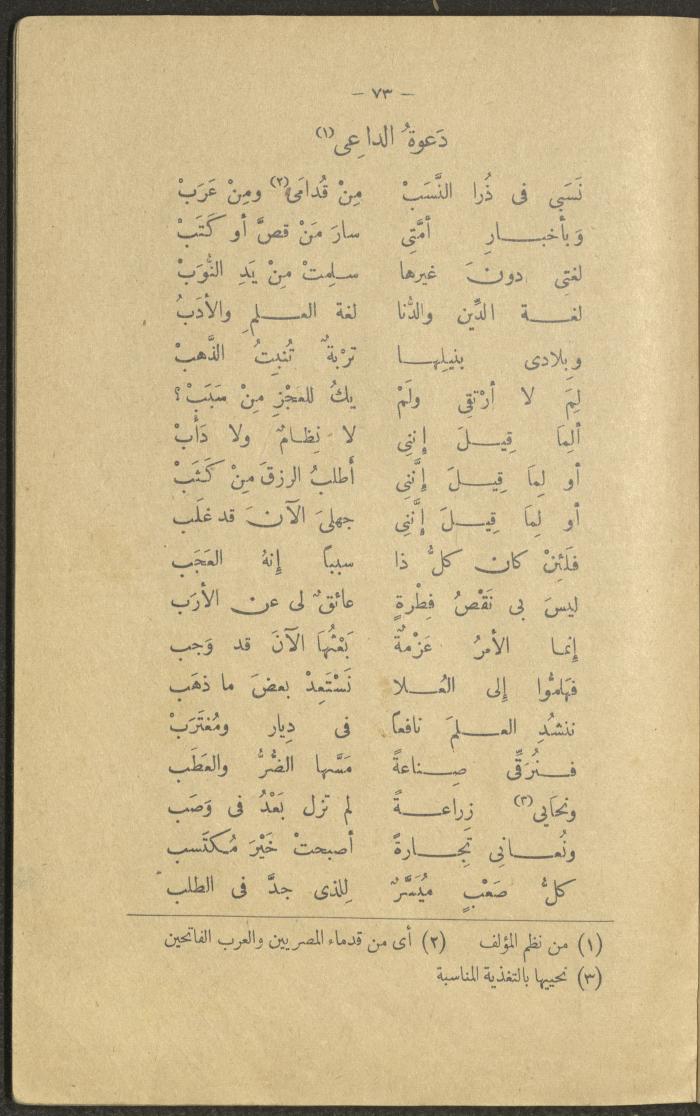 — ٧٣ —
دَعوةُ الداعِى(١)
نَسَبِى فى ذُرا النَّسَبْ مِنْ قُدامَى(٢) ومِنْ عَرَبْ
وَبأخبارِ أمَّتِى سارَ مَنْ قصَّ أو كَتَبْ
لغتِى دونَ غيرها سلِمتْ مِنْ يَدِ النُّوَبْ
لغة الدِّين والدُّنا لغة العلمِ والأدَبُ
وبلادى بنيلِها تُرْبةٌ تُنبِتُ الذَّهبْ
لِمَ لا أرْتقِى ولَمْ يكُ للعَجْزِ مِنْ سَبَبْ؟
ألِمَا قِيلَ إننِى لا نِظامٌ ولا دَأَبْ
أو لِمَا قِيلَ إنَّنِى أَطلبُ الرزقَ مِنْ كَثَبْ
أو لِمَا قِيلَ إنَّنِى جهلىَ الآنَ قد غلَب
فلَئِنْ كان كلُّ ذا سبباً إنهُ العَجَب
ليسَ بى نَقْصُ فِطْرةٍ عائقٌ لى عن الأرَب
إنما الأمرُ عَزْمةٌ بَعْثُهَا الآنَ قد وَجب
فهَلمُّوا إلى العُلا نَسْتَعِدْ بعضَ ما ذهَب
ننشُدِ العلمَ نافعاً فى دِيار ومُغتَرَبْ
فنُرَقِّى صِناعةً مَسَّها الضُّرُّ والعَطَب
ونحَابِى(٣) زراعةً لم تزل بَعْدُ فى وَصَب
ونُعانِى تِجارةً أصبحتْ خَيْرَ مُكتَسب
كلُّ صَعْبٍ مُيَسَّرٌ لِلذى جدَّ فى الطلب
(١) من نظم المؤلف (٢) أى من قدماء المصريين والعرب الفاتحين
(٣) نحييها بالتغذية المناسبة